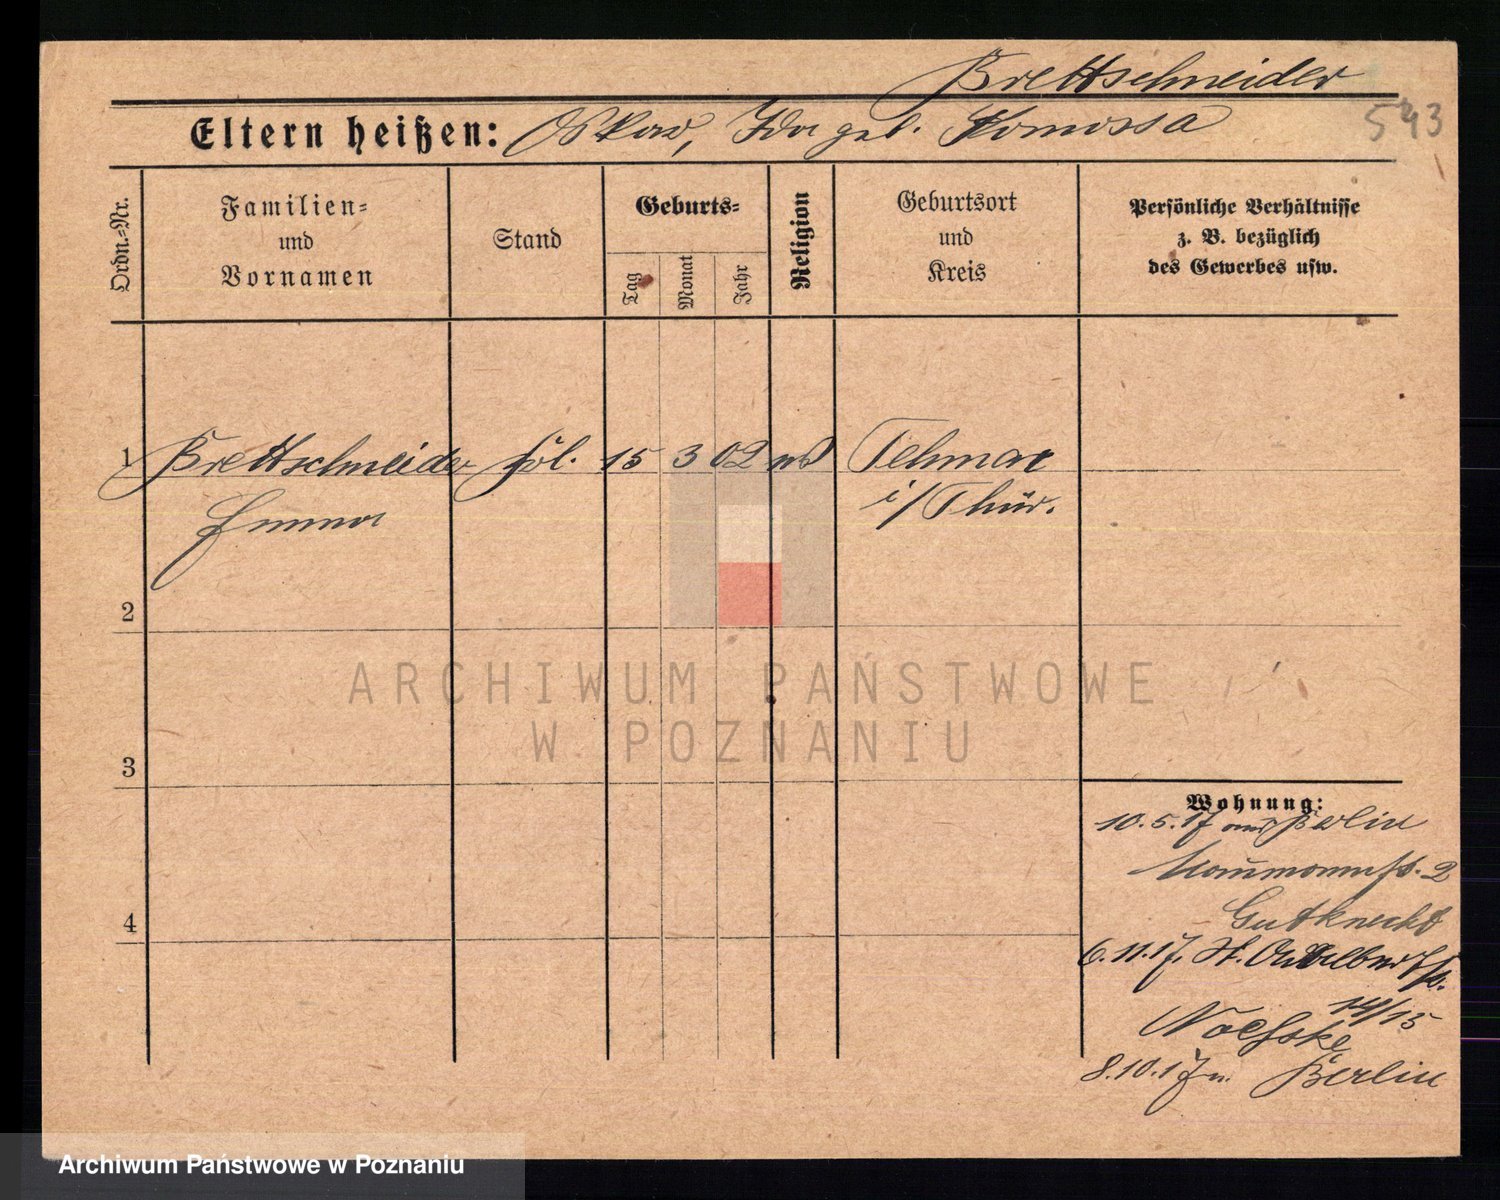 Brettschneider
543
Eltern heißen: Oskar, Ida geb. Komossa
Ordn.-Nr.
Familien- und Vornamen
Stand
Geburts-
Tag
Monat
Jahr
Religion
Geburtsort und Kreis
Persönliche Verhältnisse z. B. bezüglich des Gewerbes usw.
1 Brettschneider 15 3 02
Emma
i/Thür.
2
ARCHIWUM PAŃSTWOWE
W POZNANIU
3
4
Wohnung:
10.5.17 aus Berlin
Naumannstr. 2
Gutknecht
6.11.17. St. Adalbertstr.
14/15
8.10.17 n. Berlin
Archiwum Państwowe w Poznaniu